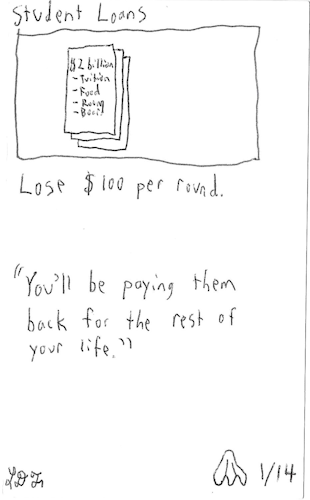 Student Loans
$2 billion
-Tuition
-Food
-Rooms
-Books
Lose $100 per round.
"You'll be paying them
back for the rest of
your life."
1/14